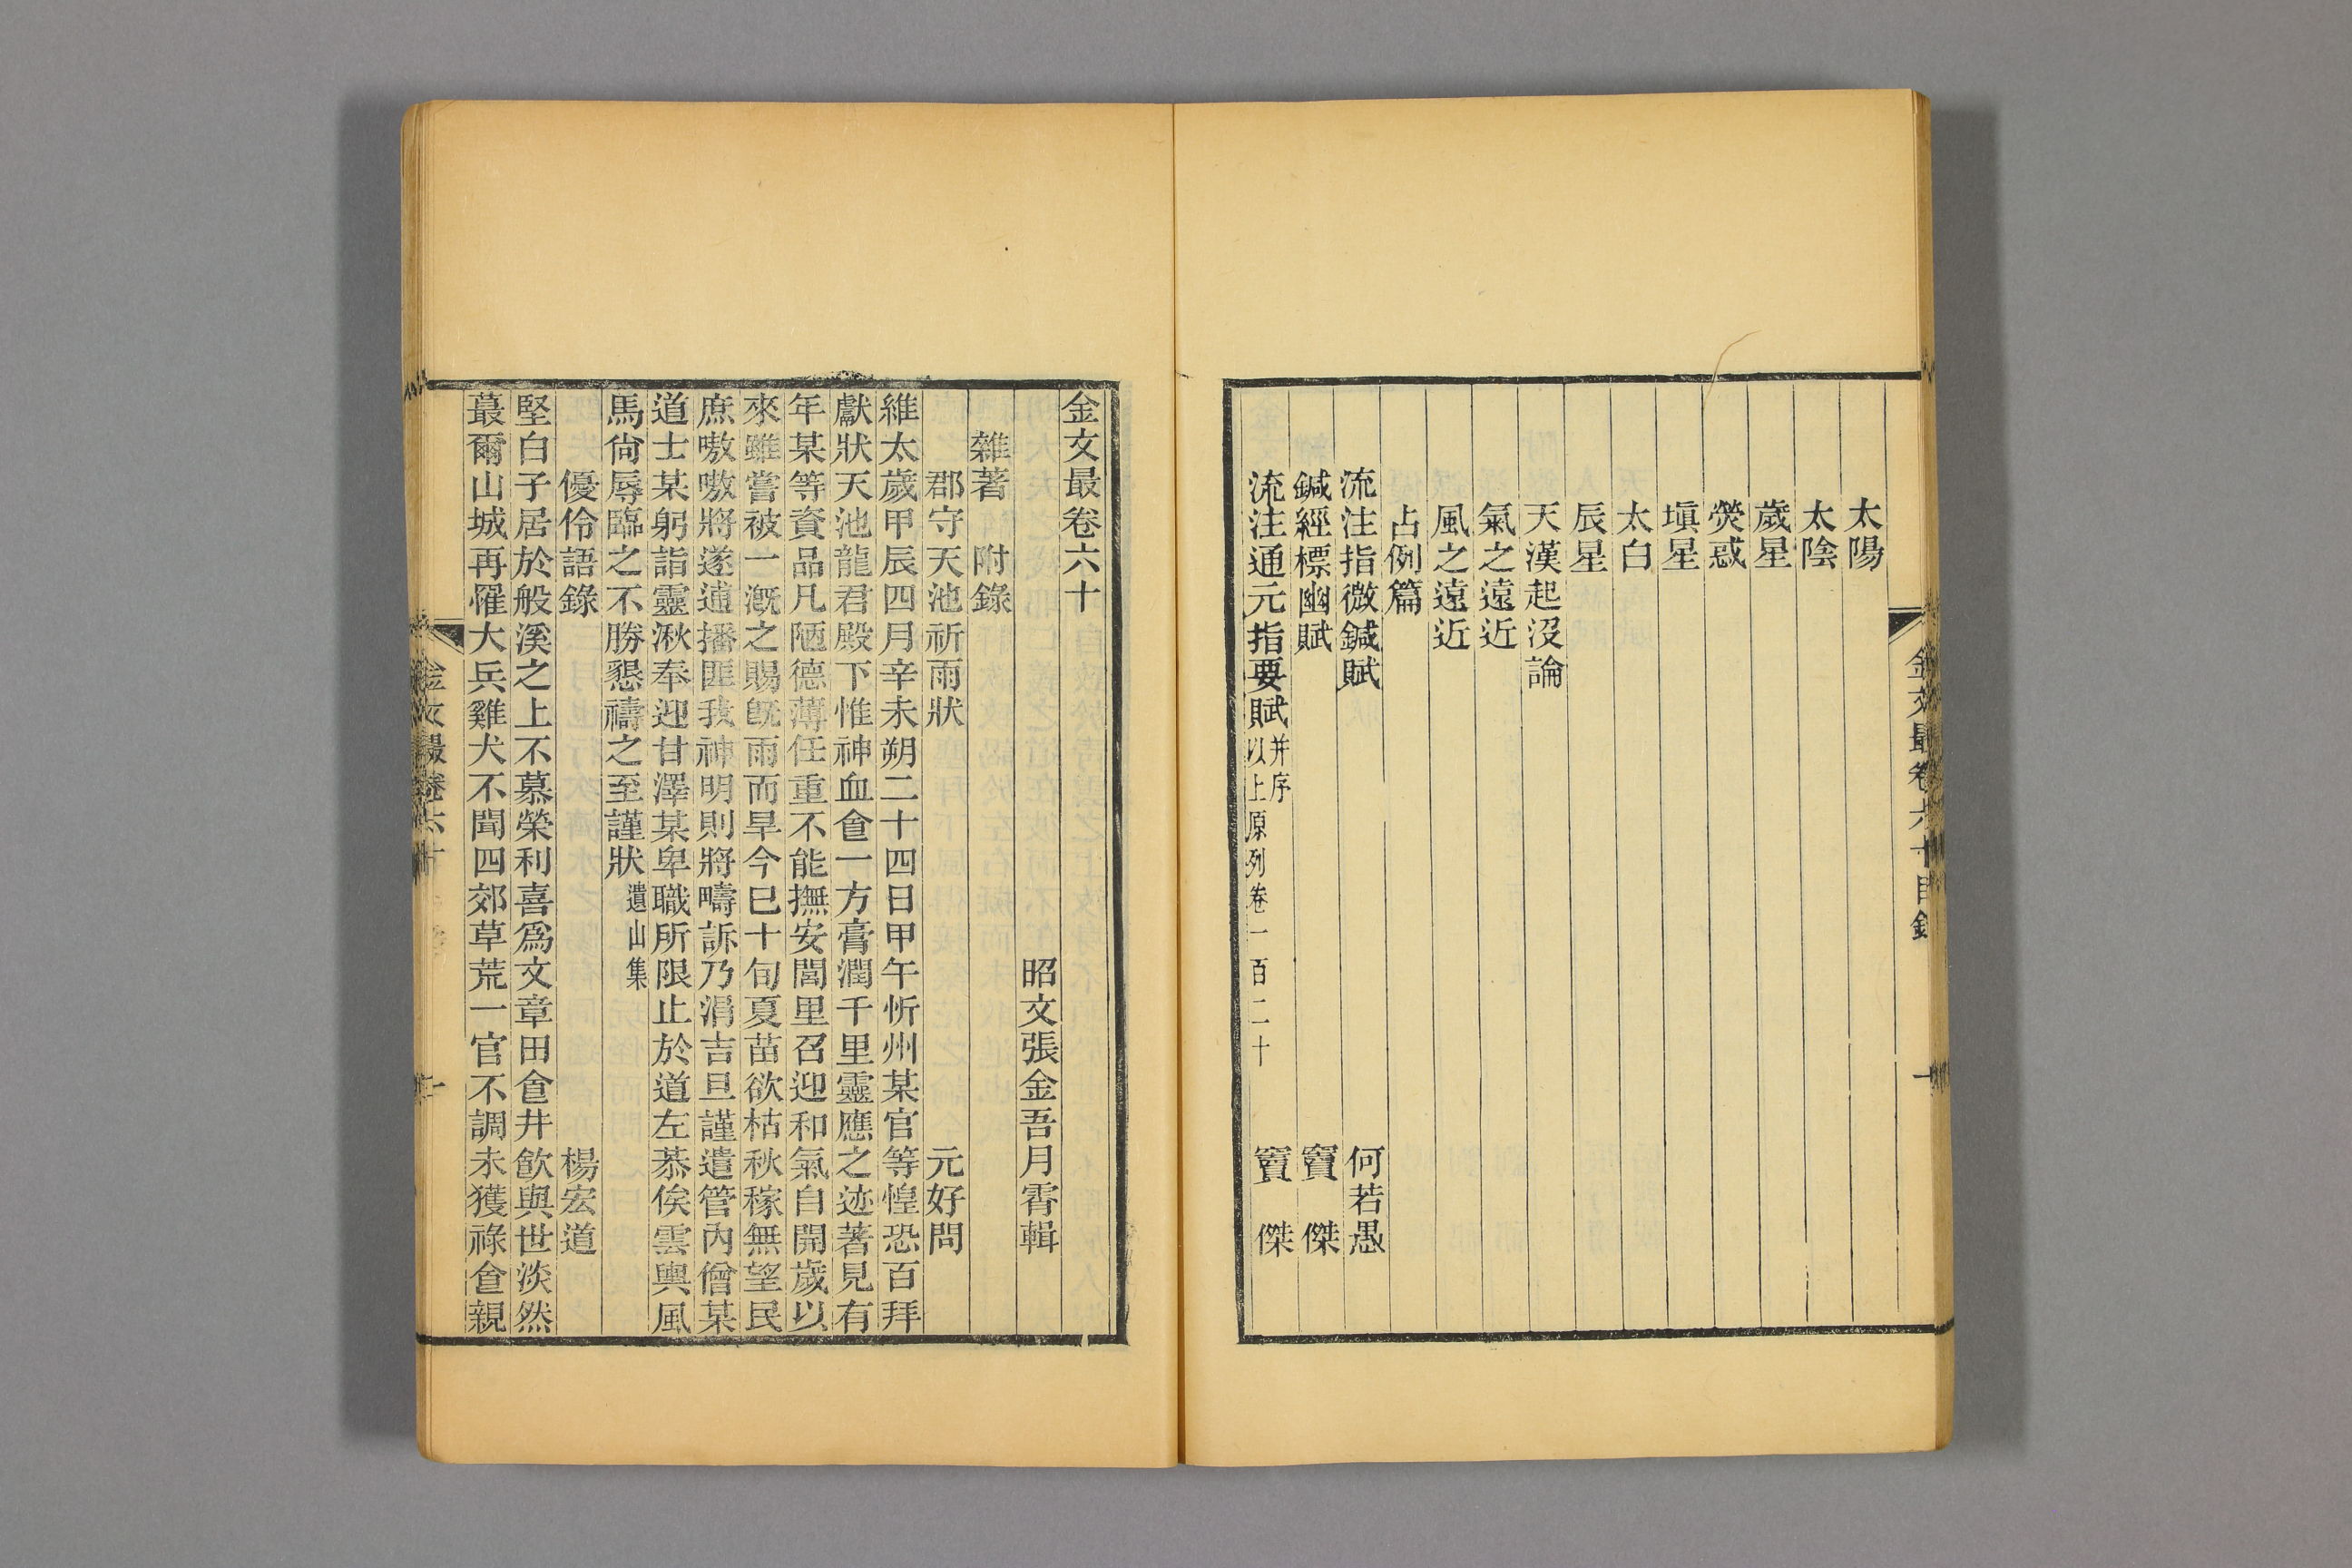 太陽
太陰
歲星
熒惑
塡星
太白
辰星
天漢起沒論
氣之遠近
風之遠近
占例篇
流注指微鍼賦 何若愚
鍼經標幽賦 竇傑
流注通元指要賦 并序 以上原列卷一百二十 竇傑
金文最卷六十目錄
一
金文最卷六十
昭文張金吾月霄輯
雜著 附錄
郡守天池祈雨狀 元好問
維太歲甲辰四月辛未朔二十四日甲午忻州某官等惶恐百拜
獻狀天池龍君殿下惟神血食一方膏潤千里靈應之迹著見有
年某等資品凡陋德薄任重不能撫安閭里召迎和氣自開歲以
來雖嘗被一漑之賜旣雨而旱今巳十旬夏苗欲枯秋稼無望民
庶嗷嗷將遂逋播匪我神明則將疇訴乃涓吉旦謹遣管內僧某
道士某躬詣靈湫奉迎甘澤某卑職所限止於道左恭俟雲輿風
馬尙辱臨之不勝懇禱之至謹狀 遺山集
優伶語錄 楊宏道
堅白子居於般溪之上不慕榮利喜爲文章田食井飮與世淡然
蕞爾山城再罹大兵雞犬不聞四郊草荒一官不調未獲祿食親
金文最卷六十
一